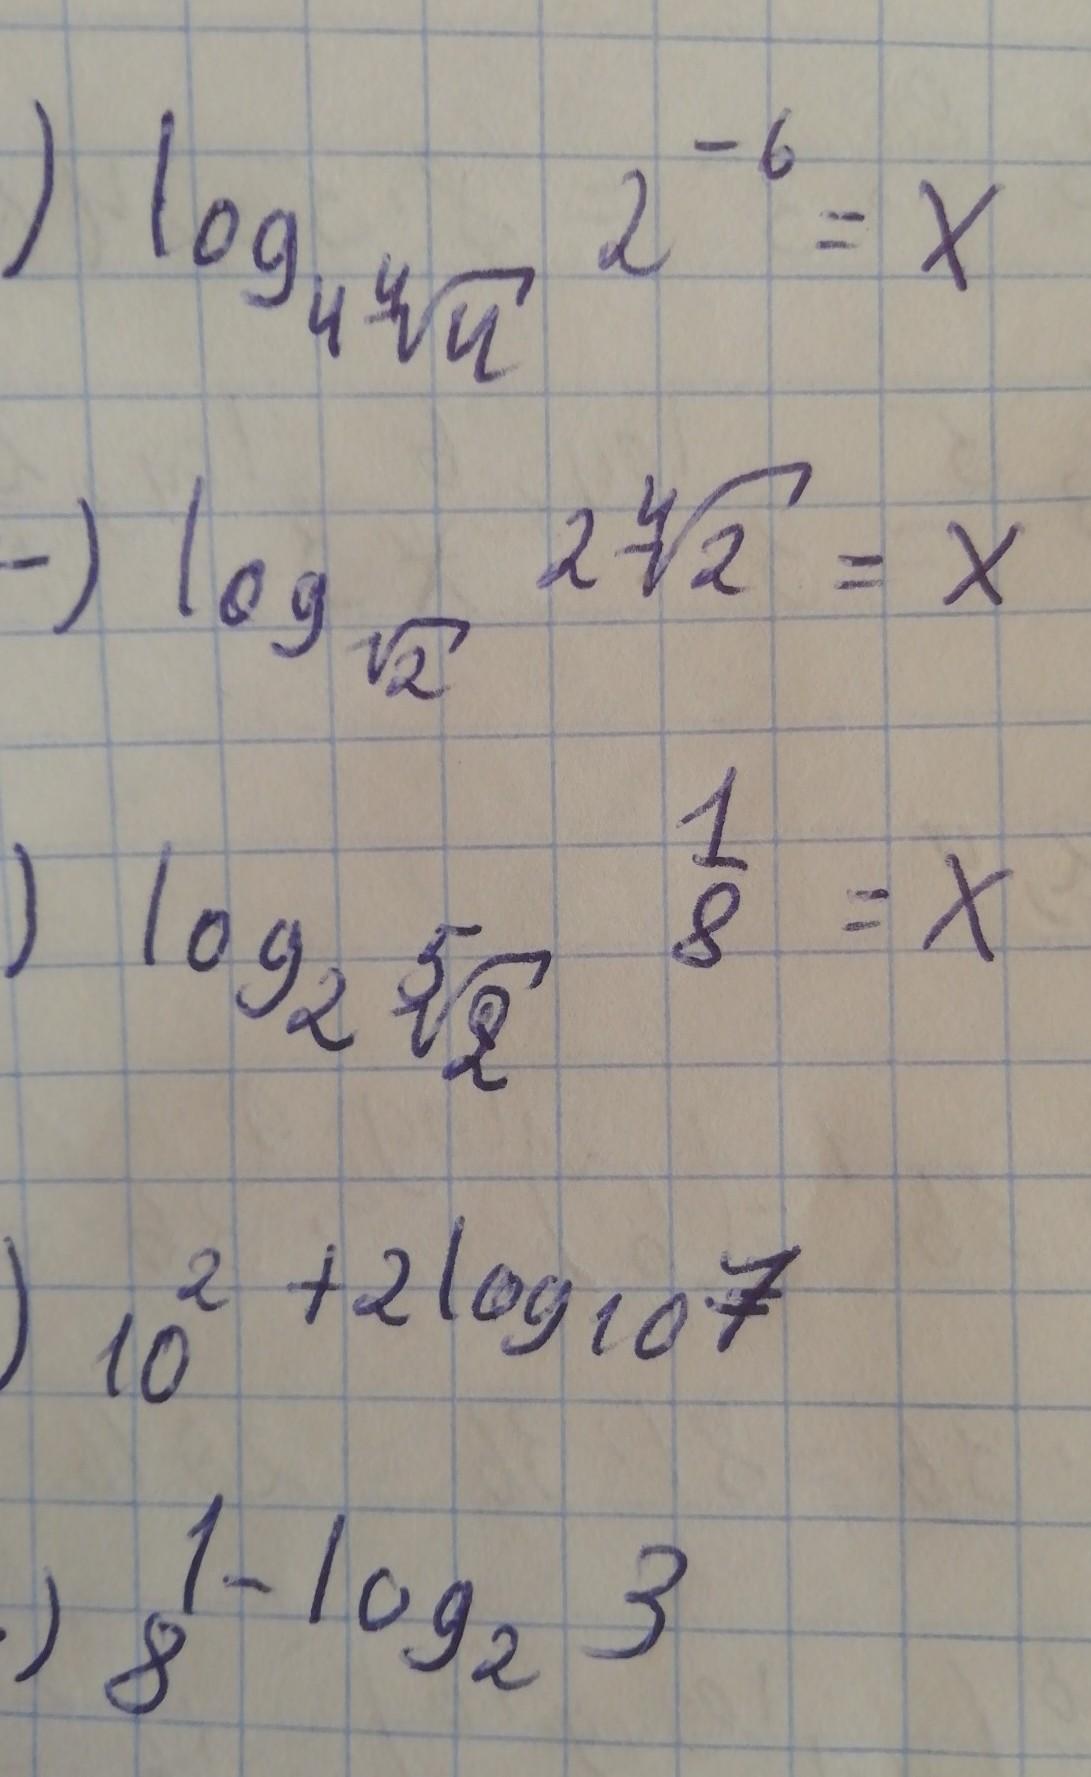 ) log₄ ⁴√4 2⁻⁶ = x
-) log √2 2 ⁴√2 = x
) log₂ ⁵√2 1/8 = x
) 10² + 2 log₁₀ 7
.) 8¹ - log₂ 3